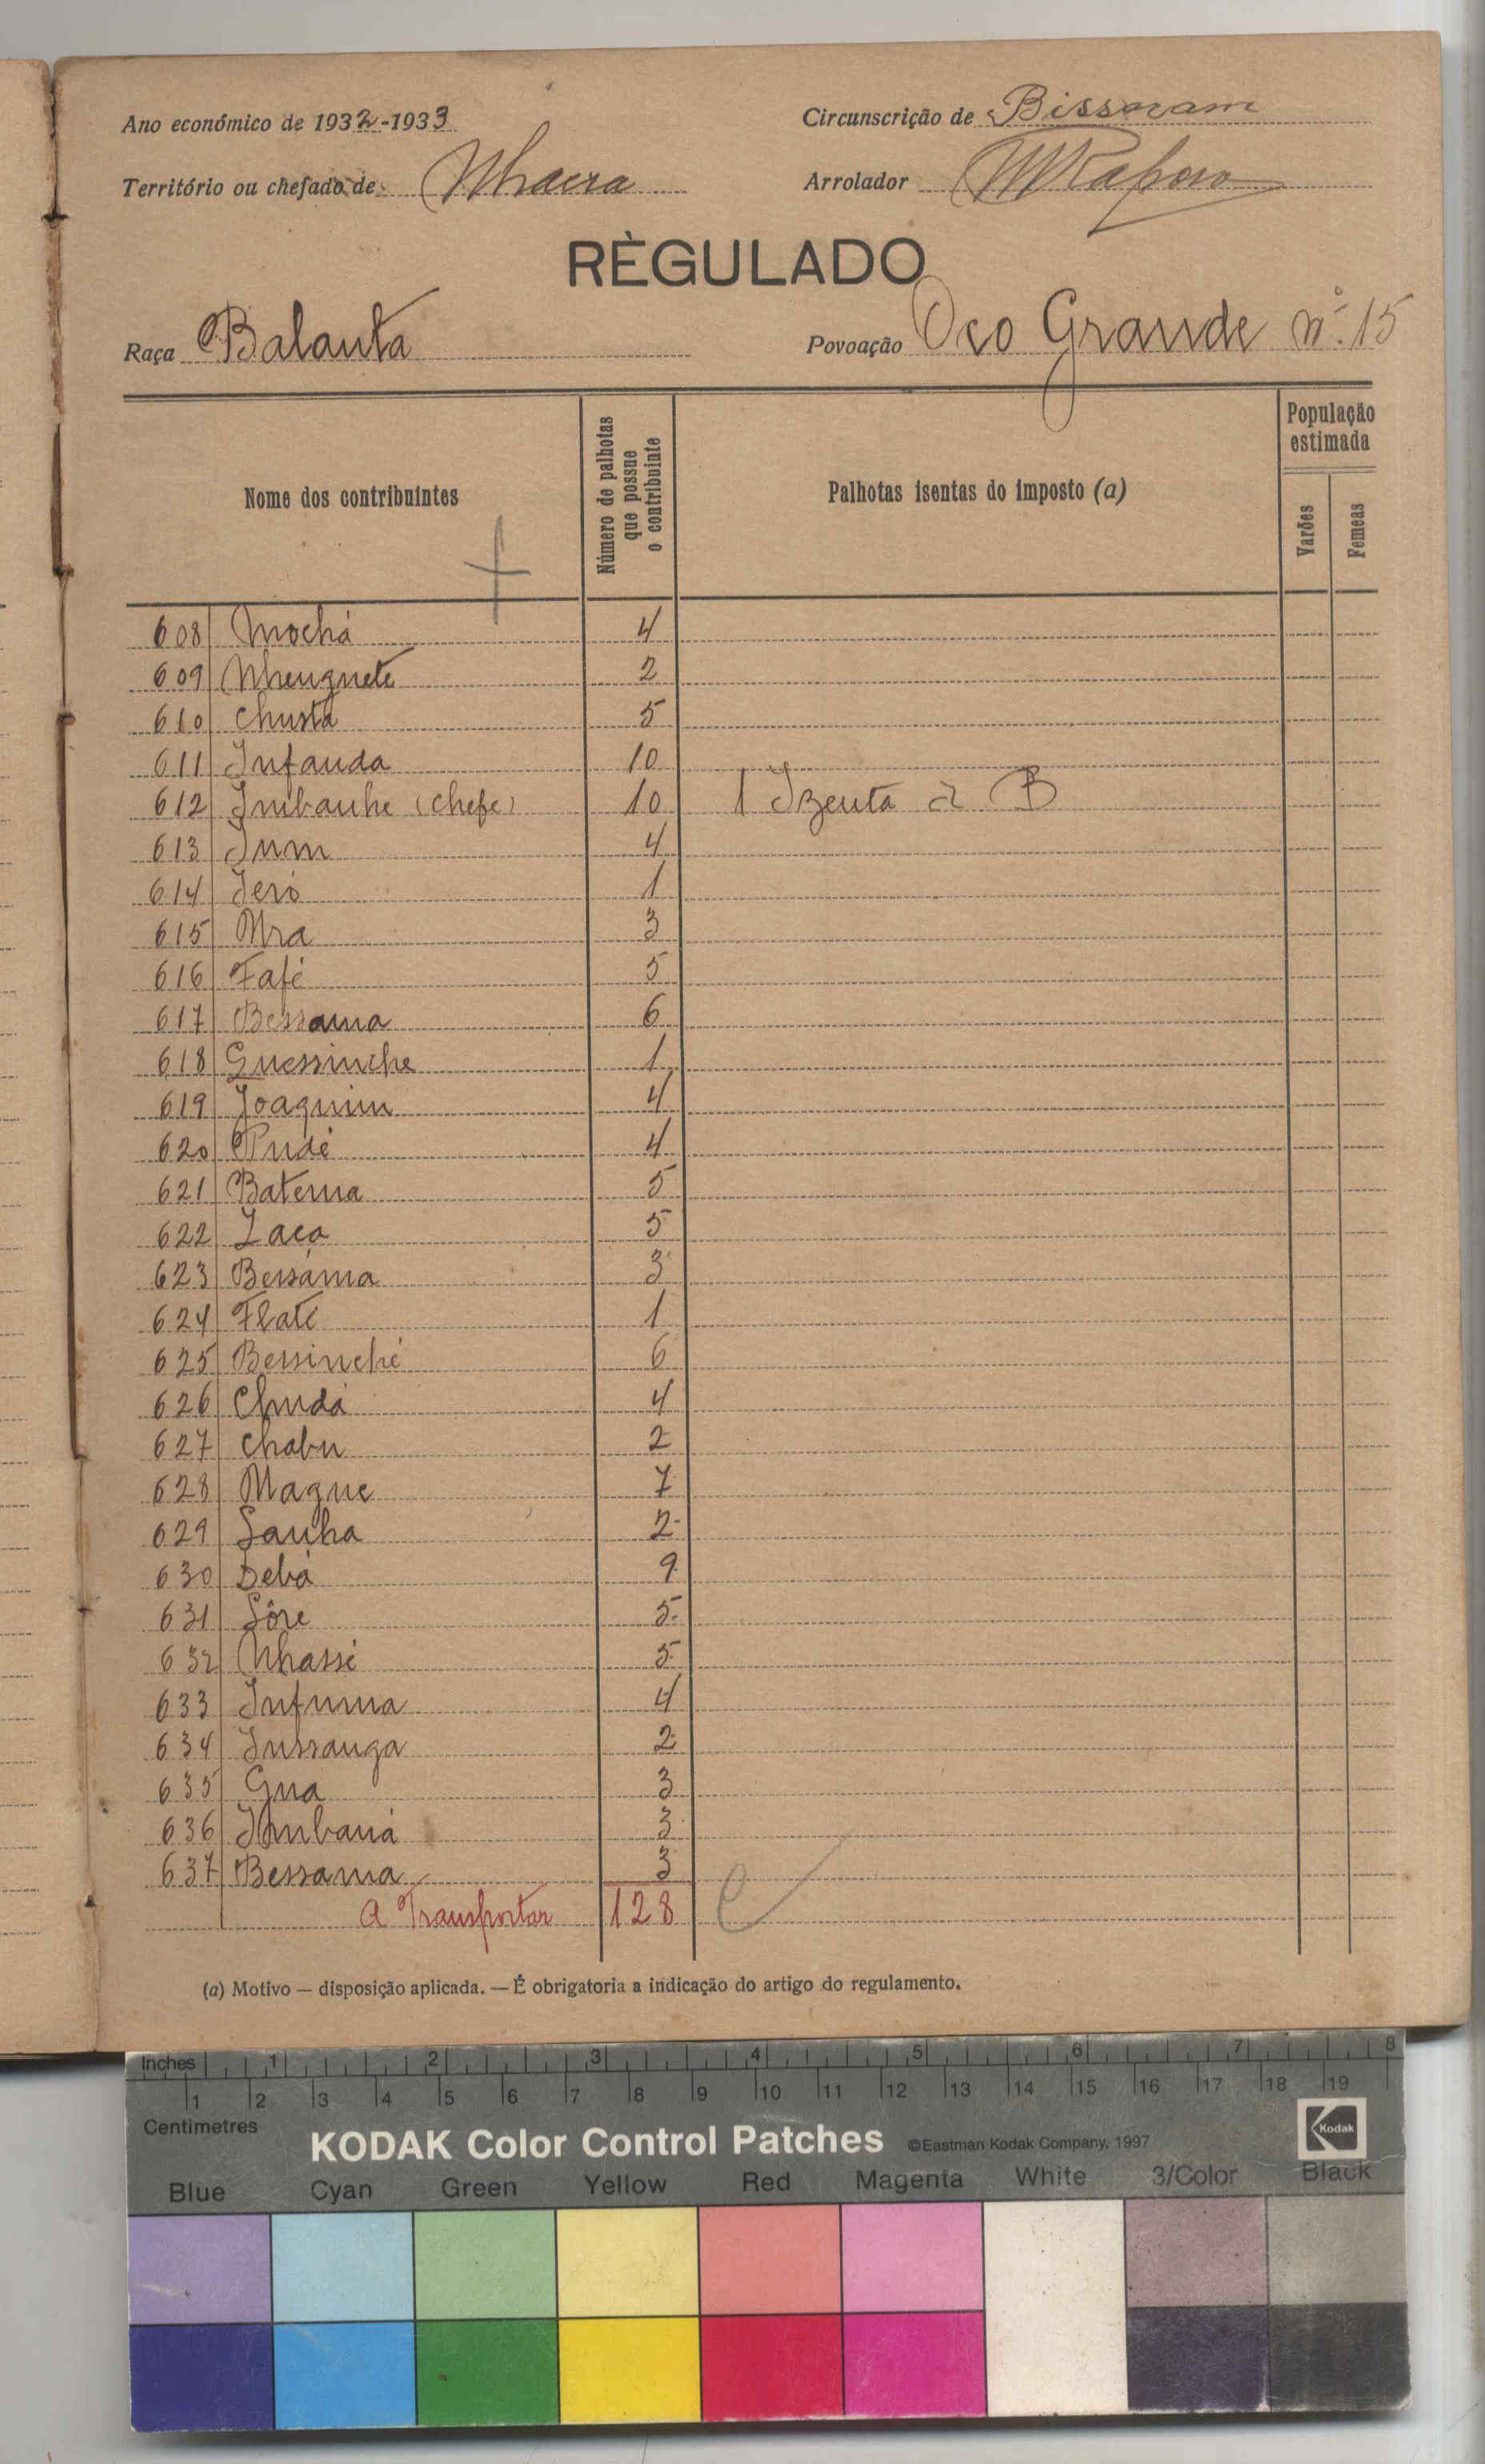 Ano económico de 1932-1933
Circunscrição de Bissoram
Território ou chefado de Nhacra
Arrolador MRaposo
RÈGULADO
Raça Balanta
Povoação Oco Grande nº. 15
Nome dos contribuintes
Número de palhotas que possue o contribuinte
Palhotas isentas do imposto (a)
População estimada
Varões
Femeas
608 Mochá 4
609 Nhenguete 2
610 Chustá 5
611 Infanda 10
612 Imbanhe (chefe) 10 1 Izenta à B
613 Inm 4
614 Jeró 1
615 Mra 3
616 Fafé 5
617 Bessama 6
618 Guessinche 1
619 Joaquim 4
620 Pudé 4
621 Batema 5
622 Laca 5
623 Bessama 3
624 Flaté 1
625 Bessinché 6
626 Chudá 4
627 Chabu 2
628 Mague 7
629 Sanha 2
630 Debá 9
631 Sôre 5
632 Nhassé 5
633 Infuma 4
634 Inssanga 2
635 Gua 3
636 Imbaná 3
637 Bessama 3
A Transportar 128
(a) Motivo — disposição aplicada. — É obrigatoria a indicação do artigo do regulamento.
Inches 1 2 3 4 5 6 7 8
1 2 3 4 5 6 7 8 9 10 11 12 13 14 15 16 17 18 19
Centimetres
KODAK Color Control Patches ©Eastman Kodak Company, 1997 Kodak
Blue Cyan Green Yellow Red Magenta White 3/Color Black